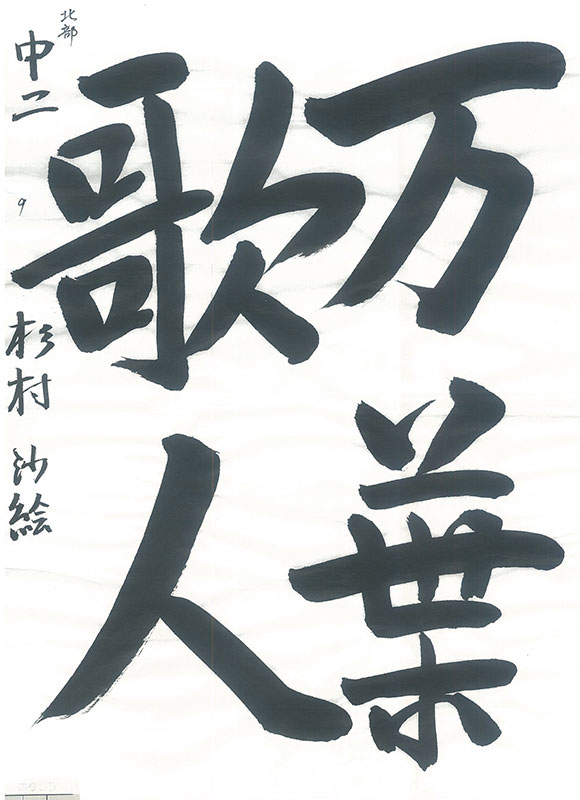 万葉
歌人
北部
中二 9 杉村 沙絵